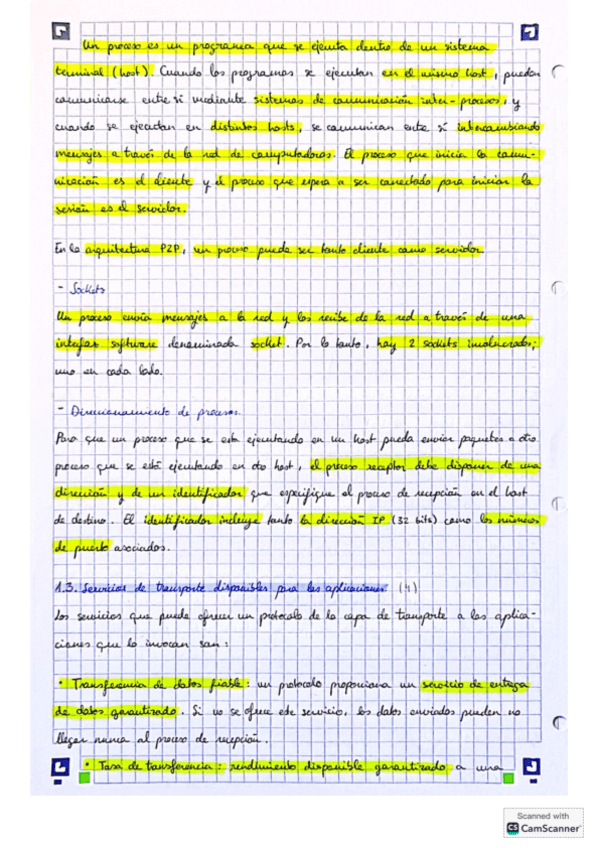 Un proceso es un programa que se ejecuta dentro de un sistema
terminal (host). Cuando los programas se ejecutan en el mismo host, pueden
comunicarse entre sí mediante sistemas de comunicación inter-procesos, y
cuando se ejecutan en distintos hosts, se comunican entre sí intercambiando
mensajes a través de la red de computadoras. El proceso que inicia la comu-
nicación es el cliente y el proceso que espera a ser contactado para iniciar la
sesión es el servidor.
En la arquitectura P2P, un proceso puede ser tanto cliente como servidor.
- Sockets
Un proceso envía mensajes a la red y los recibe de la red a través de una
interfaz software denominada socket. Por lo tanto, hay 2 sockets involucrados;
uno en cada lado.
- Direccionamiento de procesos.
Para que un proceso que se esta ejecutando en un host pueda enviar paquetes a otro
proceso que se está ejecutando en otro host, el proceso receptor debe disponer de una
dirección y de un identificador que especifique el proceso de recepción en el host
de destino. El identificador incluye tanto la dirección IP (32 bits) como los números
de puerto asociados.
1.3. Servicios de transporte disponibles para las aplicaciones. (4)
Los servicios que puede ofrecer un protocolo de la capa de transporte a las aplica-
ciones que lo invocan son:
• Transferencia de datos fiable: un protocolo proporciona un servicio de entrega
de datos garantizado. Si no se ofrece este servicio, los datos enviados pueden no
llegar nunca al proceso de recepción.
• Tasa de transferencia: rendimiento disponible garantizado a una
Scanned with
CS CamScanner